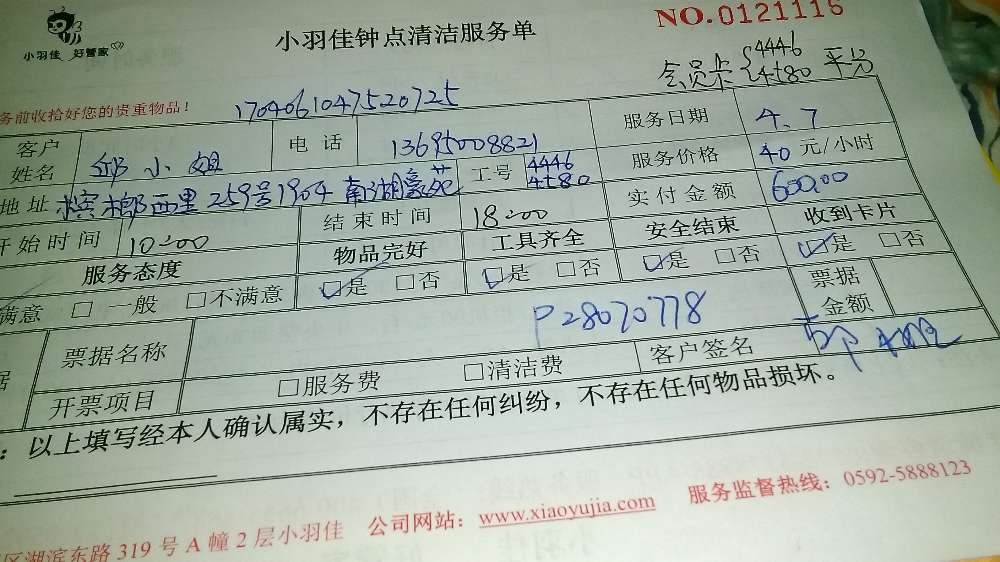 小羽佳 好管家
小羽佳钟点清洁服务单
NO.0121116
会员卡 4446 4580 平分
务前收拾好您的贵重物品!
1704061047520725
客户姓名 邱小姐 电话 13695008821 服务日期 4.7
地址 槟榔西里259号1904南湖豪苑 工号 4446 4580 服务价格 40元/小时
开始时间 10:00 结束时间 18:00 实付金额 600.00
服务态度 物品完好 工具齐全 安全结束 收到卡片
满意 □一般 □不满意 □是 □否 □是 □否 □是 □否 □是 □否
据 票据名称 P28070778 票据金额
开票项目 □服务费 □清洁费 客户签名
:以上填写经本人确认属实,不存在任何纠纷,不存在任何物品损坏。
区湖滨东路319号A幢2层小羽佳 公司网站:www.xiaoyujia.com 服务监督热线:0592-5888123